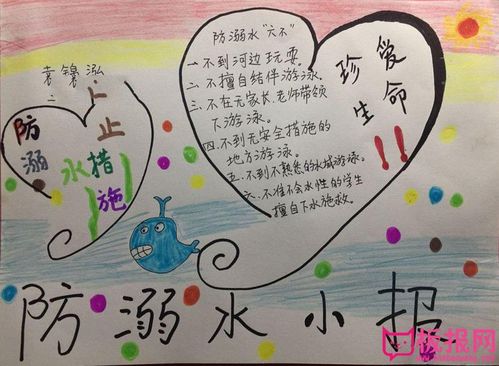 防溺水“六不”
一、不到河边玩耍。
二、不擅自结伴游泳。
三、不在无家长、老师带领
下游泳。
四、不到无安全措施的
地方游泳。
五、不到不熟悉的水域游泳。
六、不准不会水性的学生
擅自下水施救。
珍爱
生命
!!
袁锦泓
防溺
水措施
防溺水小报
板报网